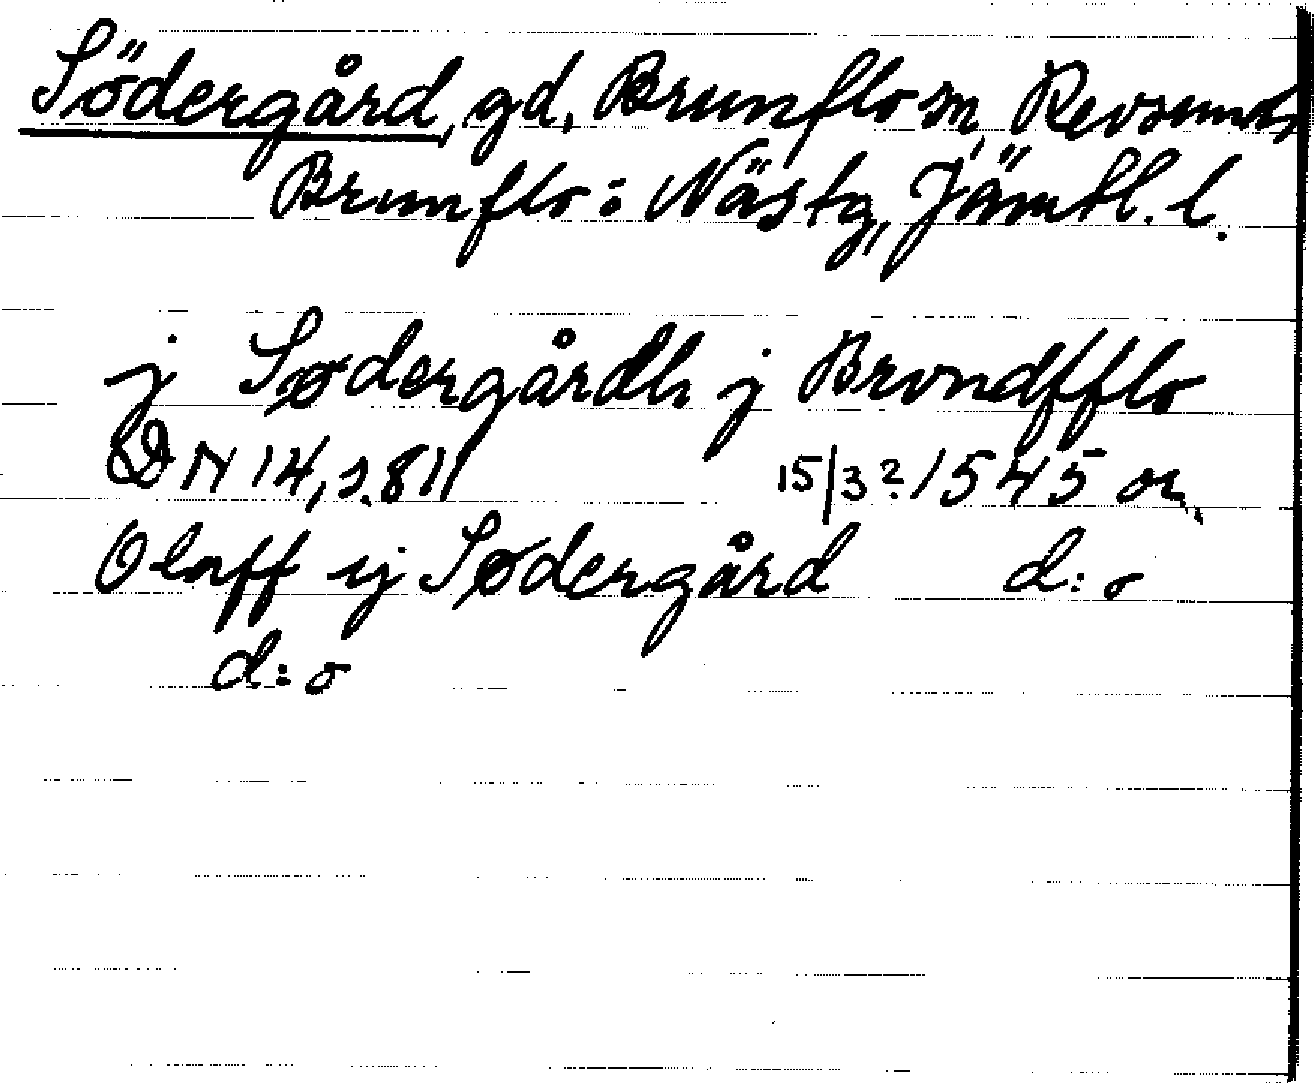 Södergård, gd, Brunflo sn, Revsunds
Brunflo: Nästg, Jämtl. l.
j Sødergårdh j Brvndfflo
DN 14, s. 811 15/3? 1545 or.
Olaff ij Sødergård d:o
d:o